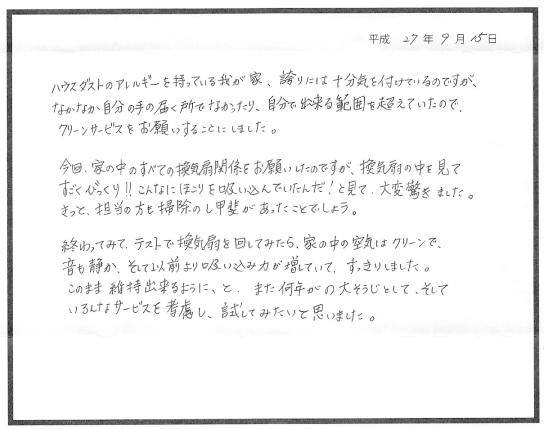 平成 27年 9月 15日
ハウスダストのアレルギーを持っている我が家、誇りには十分気を付けているのですが、
なかなか自分の手の届く所でなかったり、自分で出来る範囲を超えていたので、
クリーンサービスをお願いすることにしました。
今回、家の中のすべての換気扇関係をお願いしたのですが、換気扇の中を見て
すごくびっくり!!こんなにほこりを吸い込んでいたんだ!と見て、大変驚きました。
きっと、担当の方も掃除のし甲斐があったことでしょう。
終わってみて、テストで換気扇を回してみたら、家の中の空気はクリーンで、
音も静か、そして以前より吸い込み力が増していて、すっきりしました。
このまま維持出来るように、と、また何年かの大そうじとして、そして
いろんなサービスを考慮し、試してみたいと思いました。